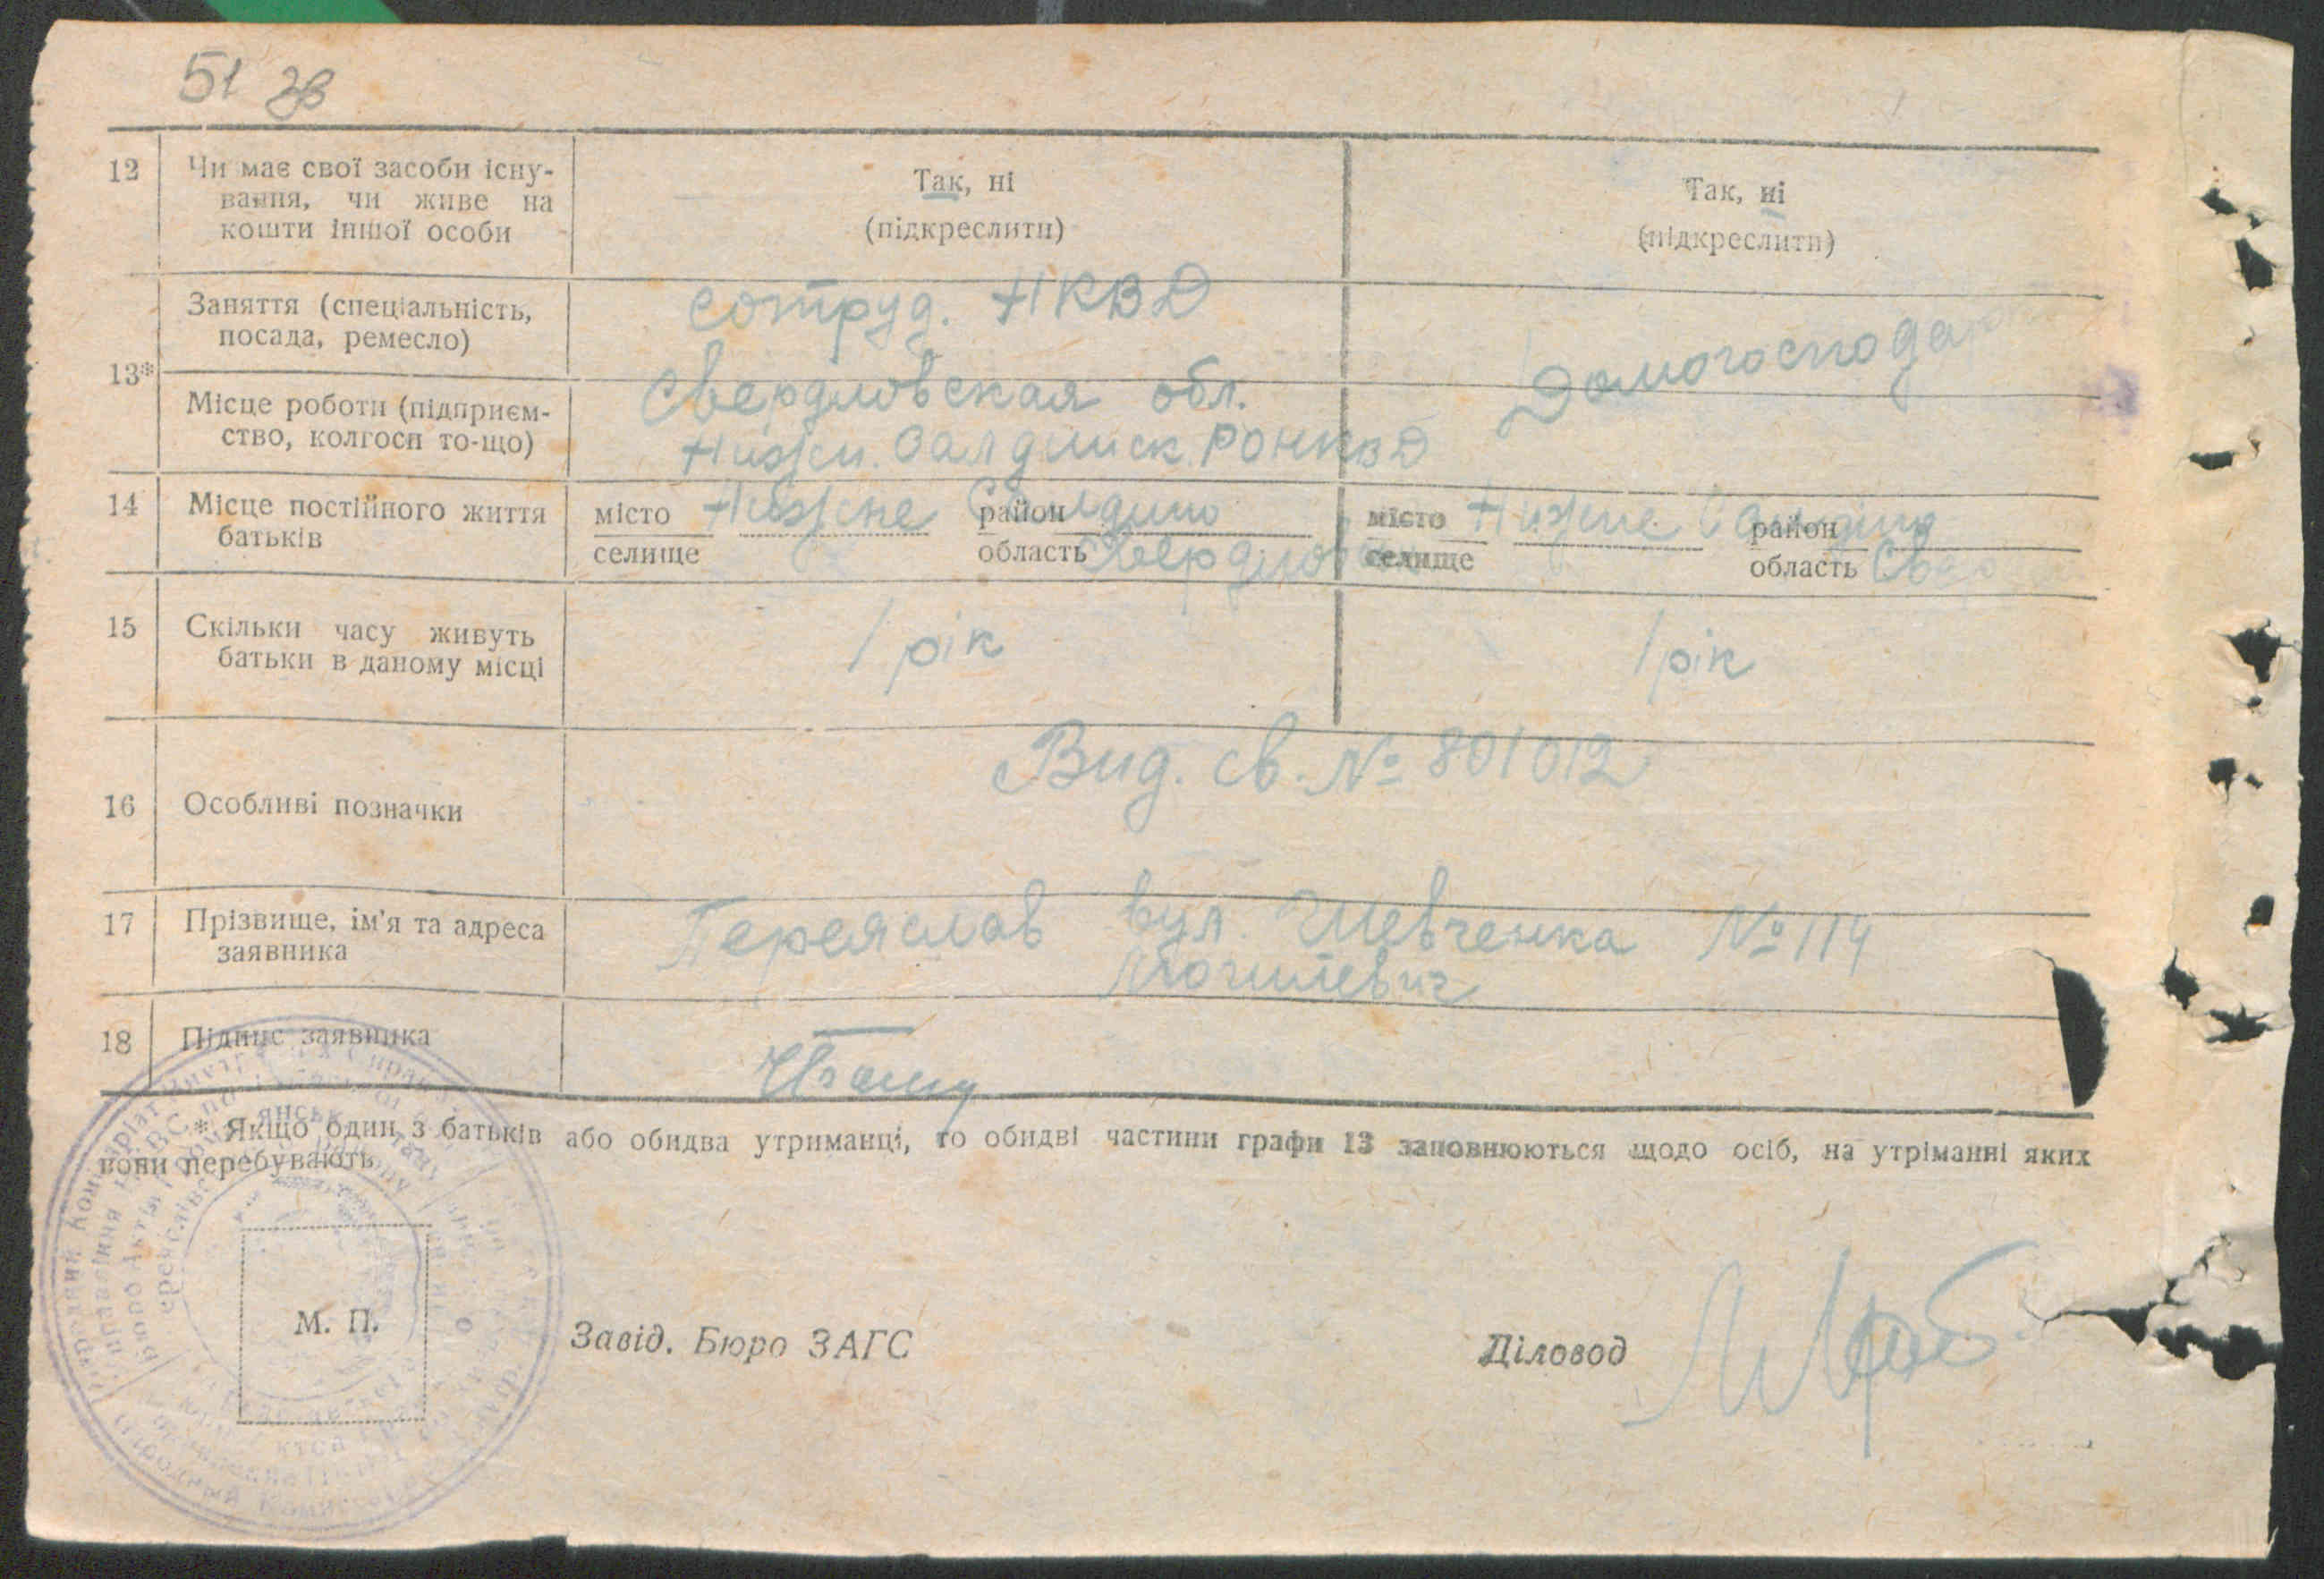 51 зв
12 Чи має свої засоби існу- Так, ні Так, ні
вання, чи живе на (підкреслити) (підкреслити)
кошти іншої особи
Заняття (спеціальність, сотруд. НКВД
посада, ремесло) Домогосподарка
13*
Місце роботи (підприєм- Свердловская обл.
ство, колгосп то-що) Нижн. Салдинск РОНКВД
14 Місце постійного життя місто Нижне Салдино район місто Нижне Салдино район
батьків селище область Свердловск селище область
15 Скільки часу живуть 1 рік 1 рік
батьки в даному місці
Вид. св. № 801012
16 Особливі позначки
17 Прізвище, ім'я та адреса Переяслав вул. Шевченка № 114
заявника Могилевич
18 Підпис заявника
* Якщо один з батьків або обидва утриманці, то обидві частини графи 13 заповнюються щодо осіб, на утріманні яких
вони перебувають
М. П.
Завід. Бюро ЗАГС Діловод